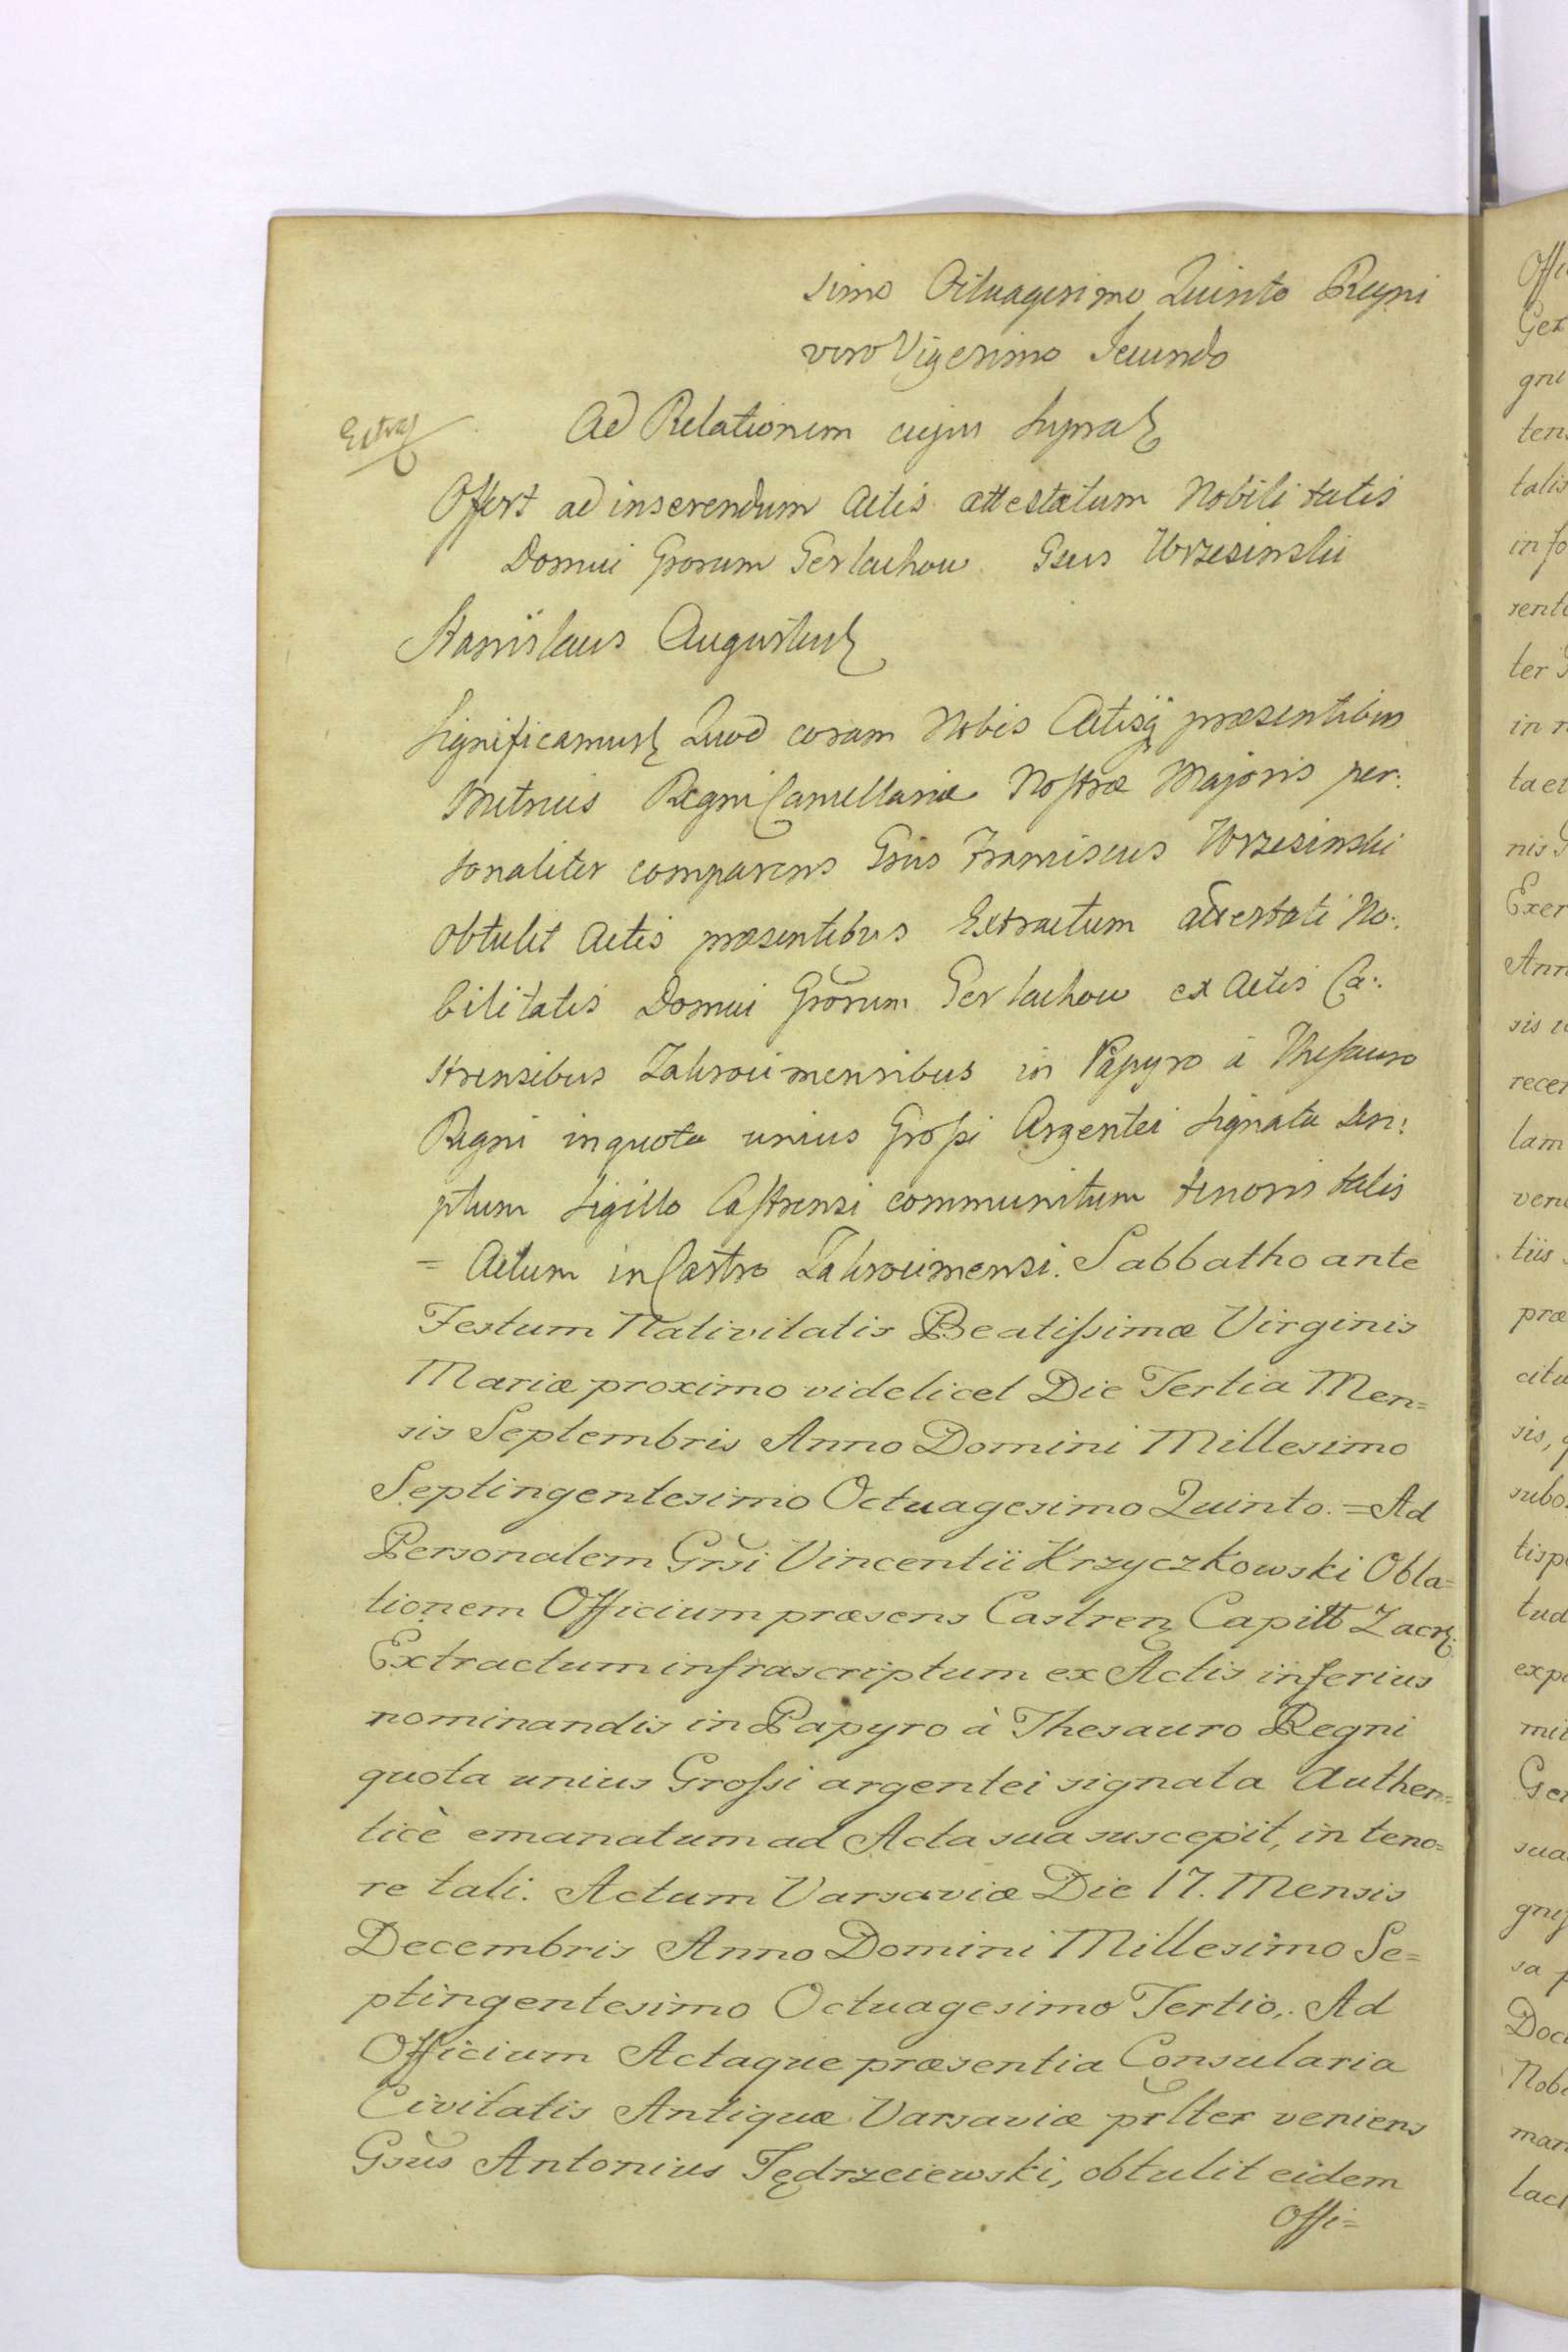 simo Octuagesimo Quinto Regni
vero Vigesimo Secundo
Extrad
Ad Relationem cujus supra
Offert ad inserendum Actis attestatum Nobilitatis
Domui Grorum Gerlachow Gsus Wrzesinski
Stanislaus Augustus
Significamus Quod coram Nobis Actisq præsentibus
Metrices Regni Cancellariæ Nostræ Majoris per:
sonaliter comparens Gsus Franciscus Wrzesinski
obtulit Actis præsentibus Extractum attestati No:
bilitatis Domui Grorum Gerlachow ex Actis Ca:
strensibus Zakrocimensibus in Papyro à Thesauro
Regni in quota unius Grossi Argentei signata scri:
ptum Sigillo Castrensi communitum tenoris talis
= Actum in Castro Zakrocimensi. Sabbatho ante
Festum Nativitatis Beatissimæ Virginis
Mariæ proximo videlicet Die Tertia Men=
sis Septembris Anno Domini Millesimo
Septingentesimo Octuagesimo Quinto. = Ad
Personalem Grsi Vincentii Krzyczkowski Obla=
tionem Officium præsens Castren Capitt Zacr:
Extractum infrascriptum ex Actis inferius
nominandis in Papyro à Thesauro Regni
quota unius Grossi argentei signata Authen=
ticè emanatum ad Acta sua suscepit, in teno=
re tali. Actum Varsaviæ Die 17. Mensis
Decembris Anno Domini Millesimo Se=
ptingentesimo Octuagesimo Tertio,. Ad
Officium Actaque præsentia Consularia
Civitatis Antiquæ Varsaviæ prlter veniens
Gsus Antonius Jędrzeiewski, obtulit eidem
Offi=